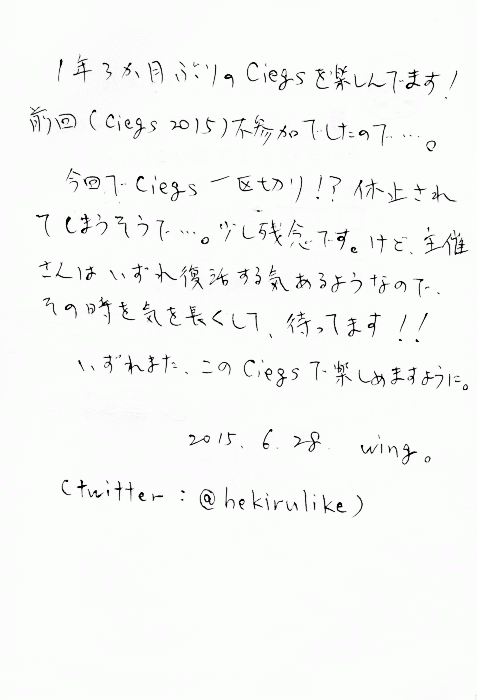 1年3か月ぶりのCiegsを楽しんでます!
前回(Ciegs 2015)不参加でしたので…。
今回でCiegs 一区切り!? 休止され
てしまうそうで…。少し残念です。けど、主催
さんはいずれ復活する気あるようなので、
その時を気を長くして、待ってます!!
いずれまた、このCiegsで楽しめますように。
2015. 6. 28. wing。
(twitter : @hekirulike)